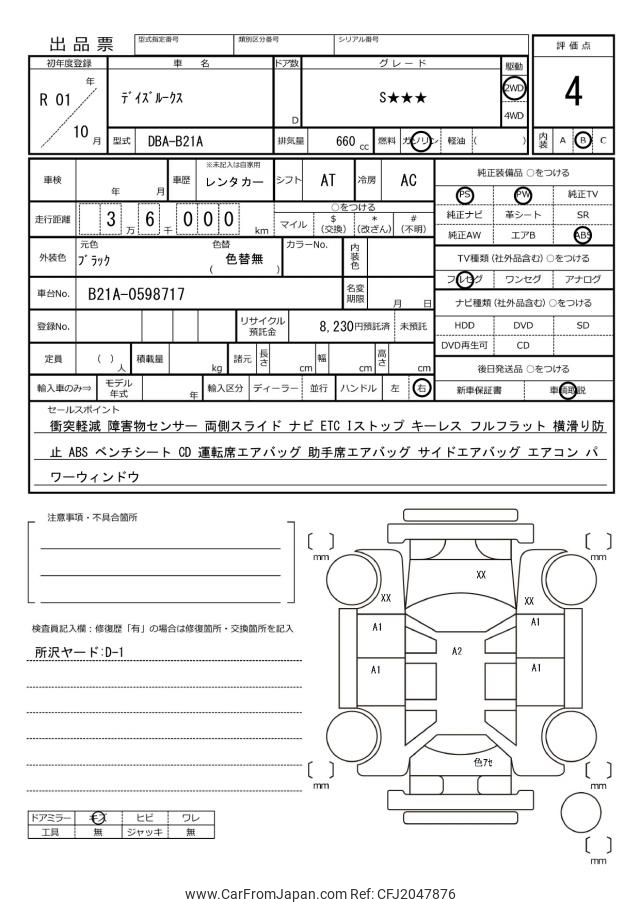 出品票
型式指定番号 類別区分番号 シリアル番号
評価点
4
内装 A B C
初年度登録 車名 ドア数 グレード 駆動
R 01 年 10 月
ﾃﾞｲｽﾞﾙｰｸｽ
D
S★★★
2WD
4WD
型式 DBA-B21A 排気量 660 cc 燃料 ガソリン 軽油 ( )
車検 年 月 車歴 ※未記入は自家用 レンタカー シフト AT 冷房 AC
走行距離 3 6 0 0 0 万 千 km
○をつける
マイル $(交換) *(改ざん) #(不明)
外装色 元色 ﾌﾞﾗｯｸ 色替 ( 色替無 ) カラーNo. 内装色
車台No. B21A-0598717 名変期限 月 日
登録No. リサイクル預託金 8,230円預託済 未預託
定員 ( )人 積載量 kg 諸元 長さ cm 幅 cm 高さ cm
輸入車のみ⇒ モデル年式 年 輸入区分 ディーラー 並行 ハンドル 左 右
純正装備品 ○をつける
PS PW 純正TV
純正ナビ 革シート SR
純正AW エアB ABS
TV種類(社外品含む) ○をつける
フルセグ ワンセグ アナログ
ナビ種類(社外品含む) ○をつける
HDD DVD SD
DVD再生可 CD
後日発送品 ○をつける
新車保証書 車輌取説
セールスポイント
衝突軽減 障害物センサー 両側スライド ナビ ETC Iストップ キーレス フルフラット 横滑り防
止 ABS ベンチシート CD 運転席エアバッグ 助手席エアバッグ サイドエアバッグ エアコン パ
ワーウィンドウ
注意事項・不具合箇所
検査員記入欄：修復歴「有」の場合は修復箇所・交換箇所を記入
所沢ヤード:D-1
ドアミラー キズ ヒビ ワレ
工具 無 ジャッキ 無
mm mm
XX
XX XX
A1 A1
A2
A1 A1
色ｱｾ
mm mm
mm
www.CarFromJapan.com Ref: CFJ2047876